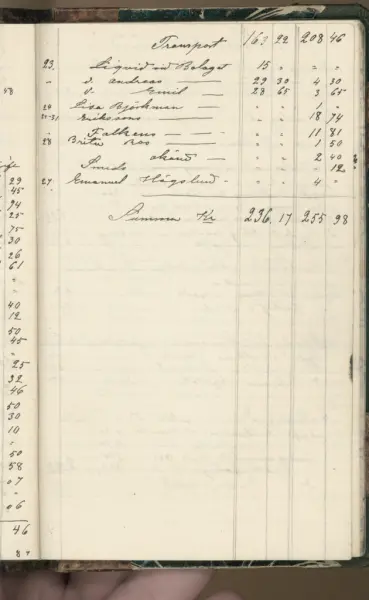 58
29
45
94
25
75
30
26
61
"
"
40
12
50
45
"
25
32
46
50
30
10
"
50
58
07
"
06
46
Transport 163 22 208 46
23. Liqvid vid Bolaget 15 " " "
" d. Andreas — 29 30 4 30
d. Emil — 28 65 3 65
24 Lisa Björkman — " " 1 "
Eriksons — " " 18 74
" Falkens — " " 11 81
28 Brita Ros — " " 1 50
" " 2 40
Smids " " " 12
27 Emanuel Högslund - " " 4 "
Summa Kr 236. 17 255 98